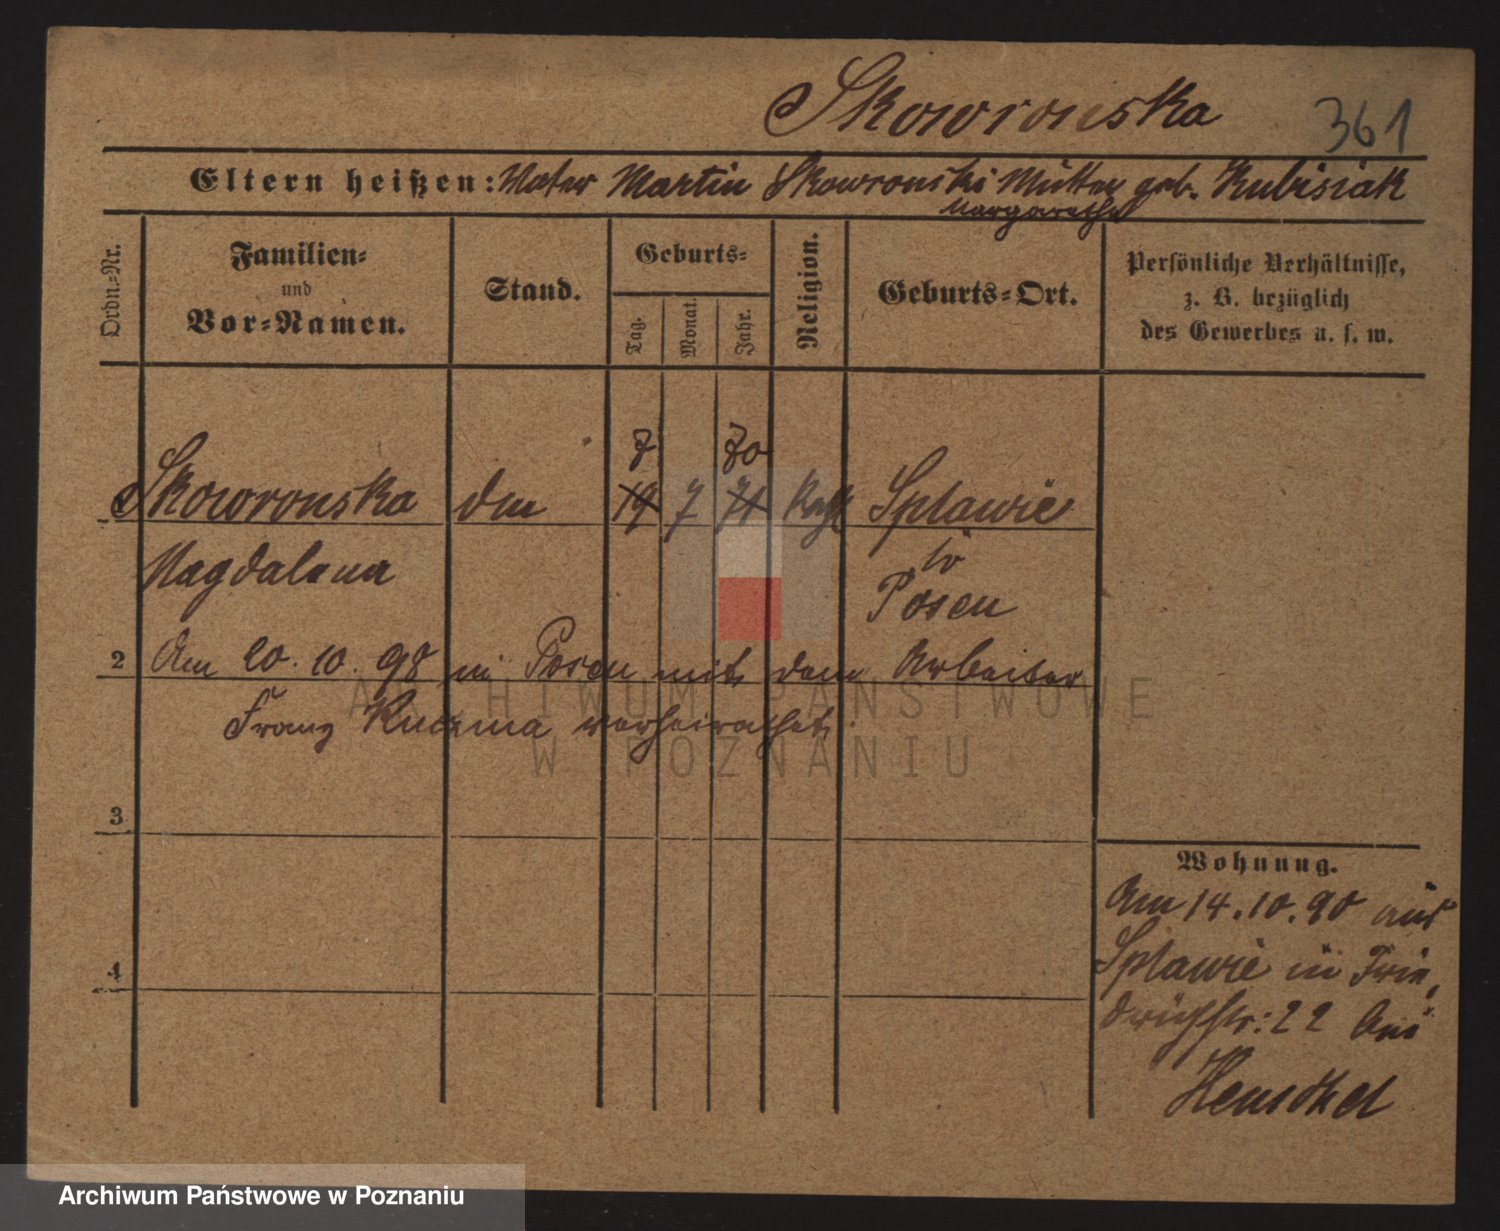 Skowronska 361
Eltern heißen: Vater Martin Skowronski Mutter geb. Kubisiak
Margaretha
Ordn.-Nr.
Familien-
und
Vor-Namen.
Stand.
Geburts-
Tag.
Monat.
Jahr.
Religion.
Geburts-Ort.
Persönliche Verhältnisse,
z. B. bezüglich
des Gewerbes u. s. w.
8 70
Skowronska 19 7 71 Kath Splawie
Magdalena
Posen
2 Am 20. 10. 98 in Posen mit dem Arbeiter
Franz Kuczma verheirathet.
3
4
Wohnung.
Am 14.10.90 aus
Splawie in Frie-
drichstr: 22 bei
Henschel
ARCHIWUM PAŃSTWOWE
W POZNANIU
Archiwum Państwowe w Poznaniu